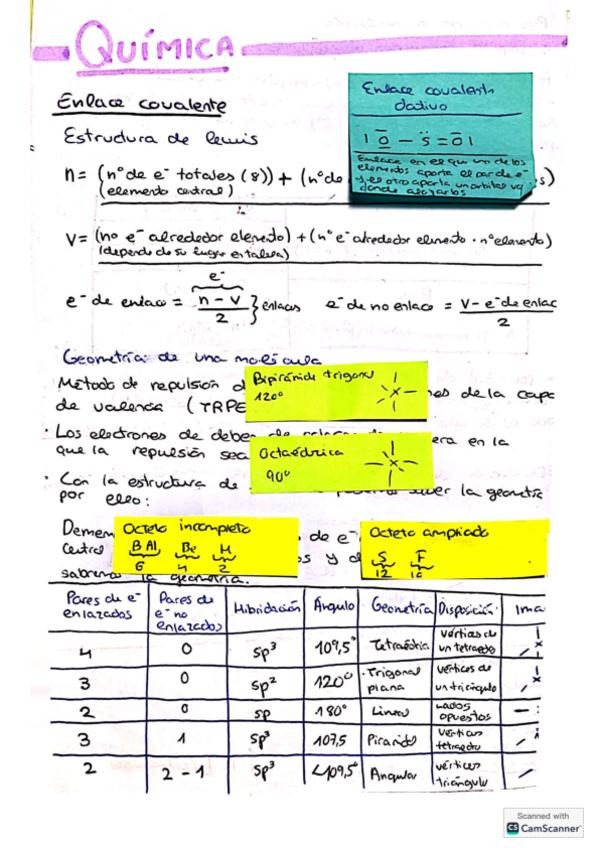 QUÍMICA
Enlace covalente
Enlace covalente
dativo
Estructura de lewis
| O – S̈ = O |
Enlace en el que uno de los
elementos aporta el par de e⁻
y el otro aporta un orbital
donde alojarlos
n = (nº de e⁻ totales (8)) + (nº de s)
(elemento central)
V = (no e⁻ alrededor elemento) + (nº e⁻ alrededor elemento · nº elemento)
(depende de su lugar en tabla)
e⁻
e⁻ de enlace = n - v / 2 } enlaces e⁻ de no enlace = V - e⁻ de enlac / 2
Geometría de una molécula
Método de repulsión d nes de la capa
de valencia (TRPE
Bipirámide trigonal
120º
· Los electrones de deben era en la
que la repulsión sea
Octaédrica
90º
· Con la estructura de ber la geometría
por ello:
Octeto incompleto
B Al Be H
6 4 2
Octeto ampliado
S F
12 10
de e⁻
Central os y d
sabremos la geometría.
Pares de e⁻ enlazados Pares de e⁻ no enlazados Hibridación Ángulo Geometría Disposición Ima
4 0 sp³ 109,5º Tetraédrica vértices de un tetraedro
3 0 sp² 120º Trigonal plana vértices de un triángulo
2 0 sp 180º Lineal Lados opuestos
3 1 sp³ 107,5 Piramide vértices tetraedro
2 2 - 1 sp³ <109,5º Angular vértices triángulo
Scanned with
CS CamScanner